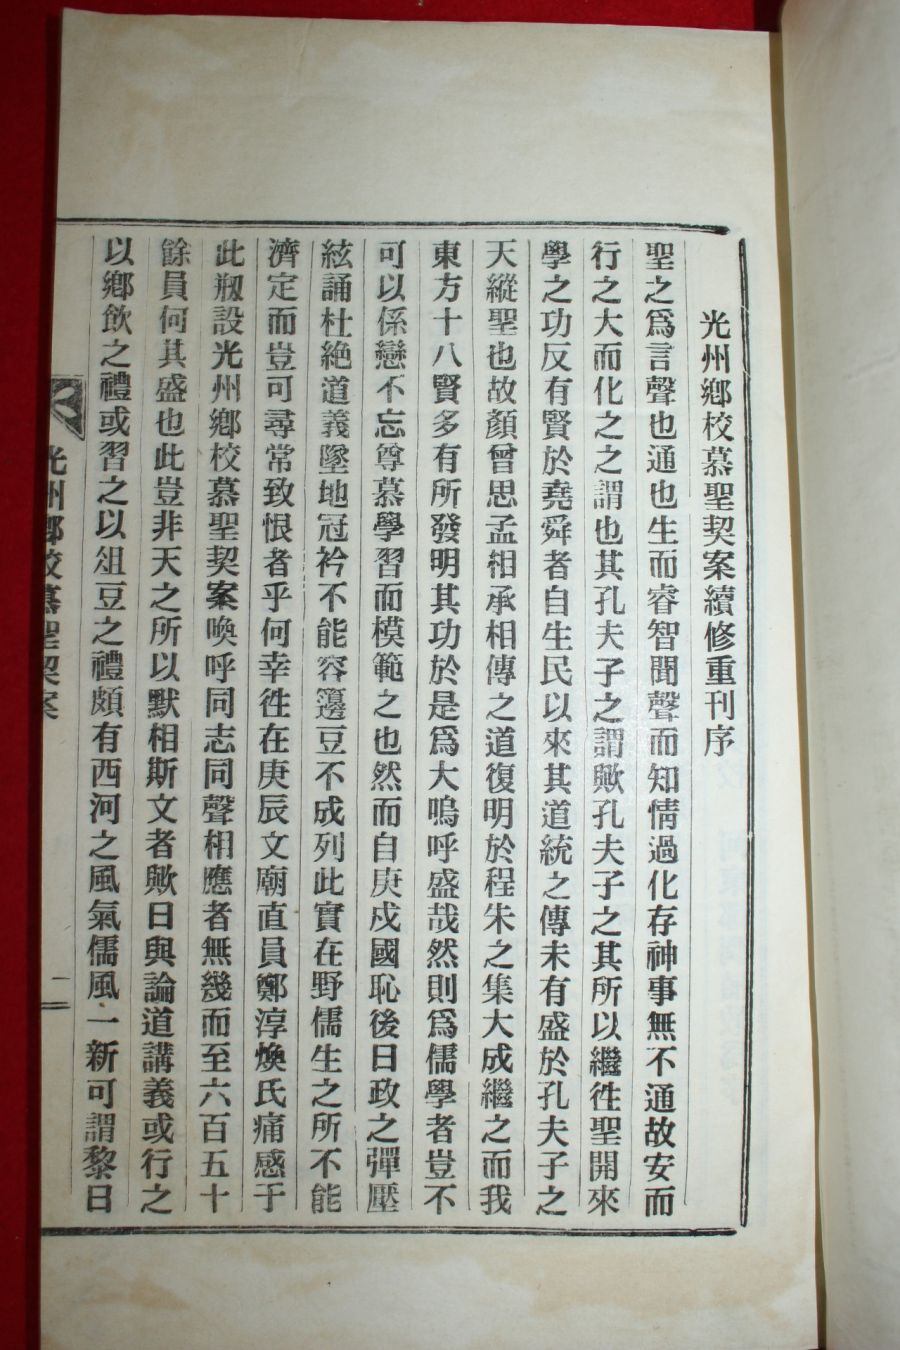 光州鄕校慕聖契案續修重刊序
聖之爲言聲也通也生而睿智聞聲而知情過化存神事無不通故安而
行之大而化之之謂也其孔夫子之謂歟孔夫子之其所以繼徃聖開來
學之功反有賢於堯舜者自生民以來其道統之傳未有盛於孔夫子之
天縱聖也故顏曾思孟相承相傳之道復明於程朱之集大成繼之而我
東方十八賢多有所發明其功於是爲大嗚呼盛哉然則爲儒學者豈不
可以係戀不忘尊慕學習而模範之也然而自庚戌國恥後日政之彈壓
絃誦杜絶道義墜地冠衿不能容籩豆不成列此實在野儒生之所不能
濟定而豈可尋常致恨者乎何幸徃在庚辰文廟直員鄭淳煥氏痛感于
此刱設光州鄕校慕聖契案喚呼同志同聲相應者無幾而至六百五十
餘員何其盛也此豈非天之所以默相斯文者歟日與論道講義或行之
以鄕飮之禮或習之以俎豆之禮頗有西河之風氣儒風一新可謂黎日
光州鄕校慕聖契案